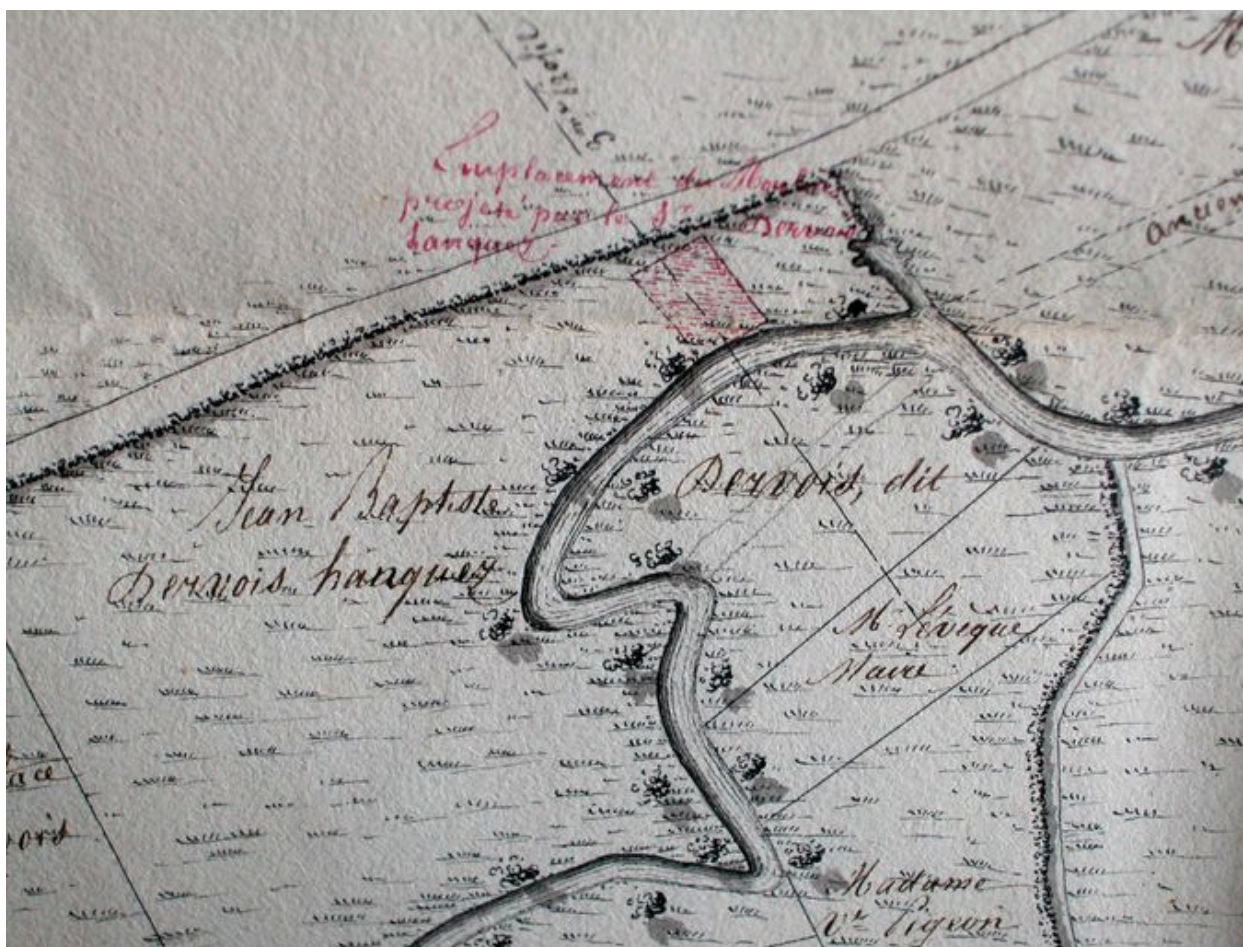 M
3me Profil
Emplacement du Moulin
projeté par le Sr Dervois
hanquez.
ancien
Jean Baptiste
Dervois, dit
Dervois hanquez
Mr Lévêque
Maire
Madame
Ve Pigeon